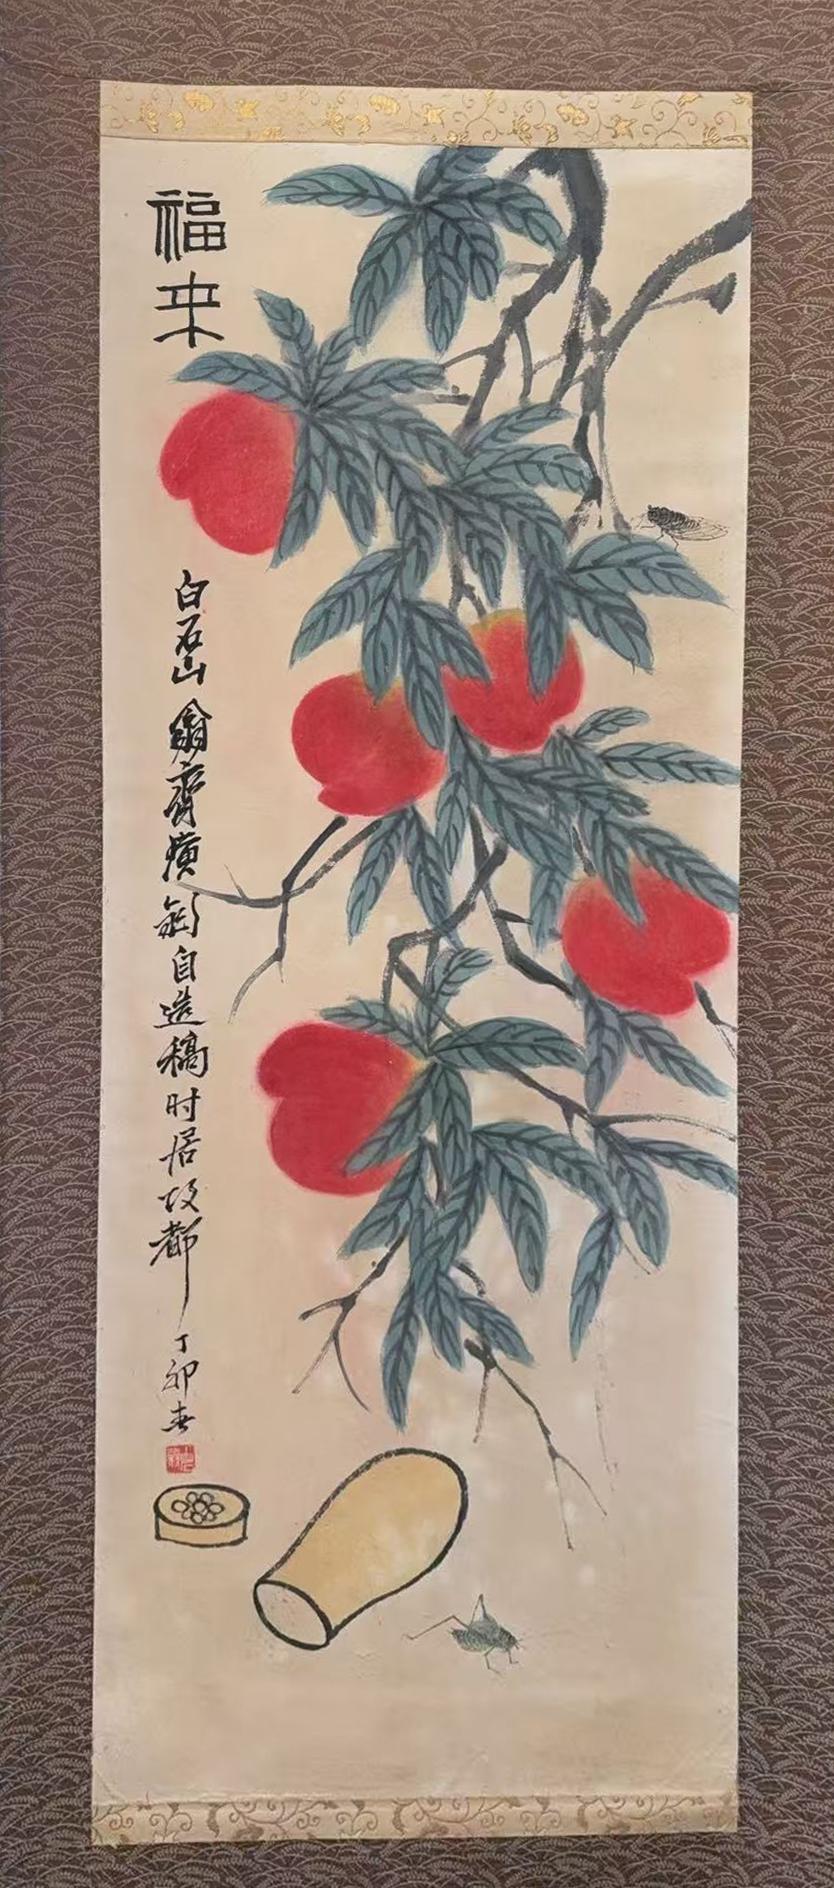 福来
白石山翁齐璜制自造稿时居故都
丁卯春